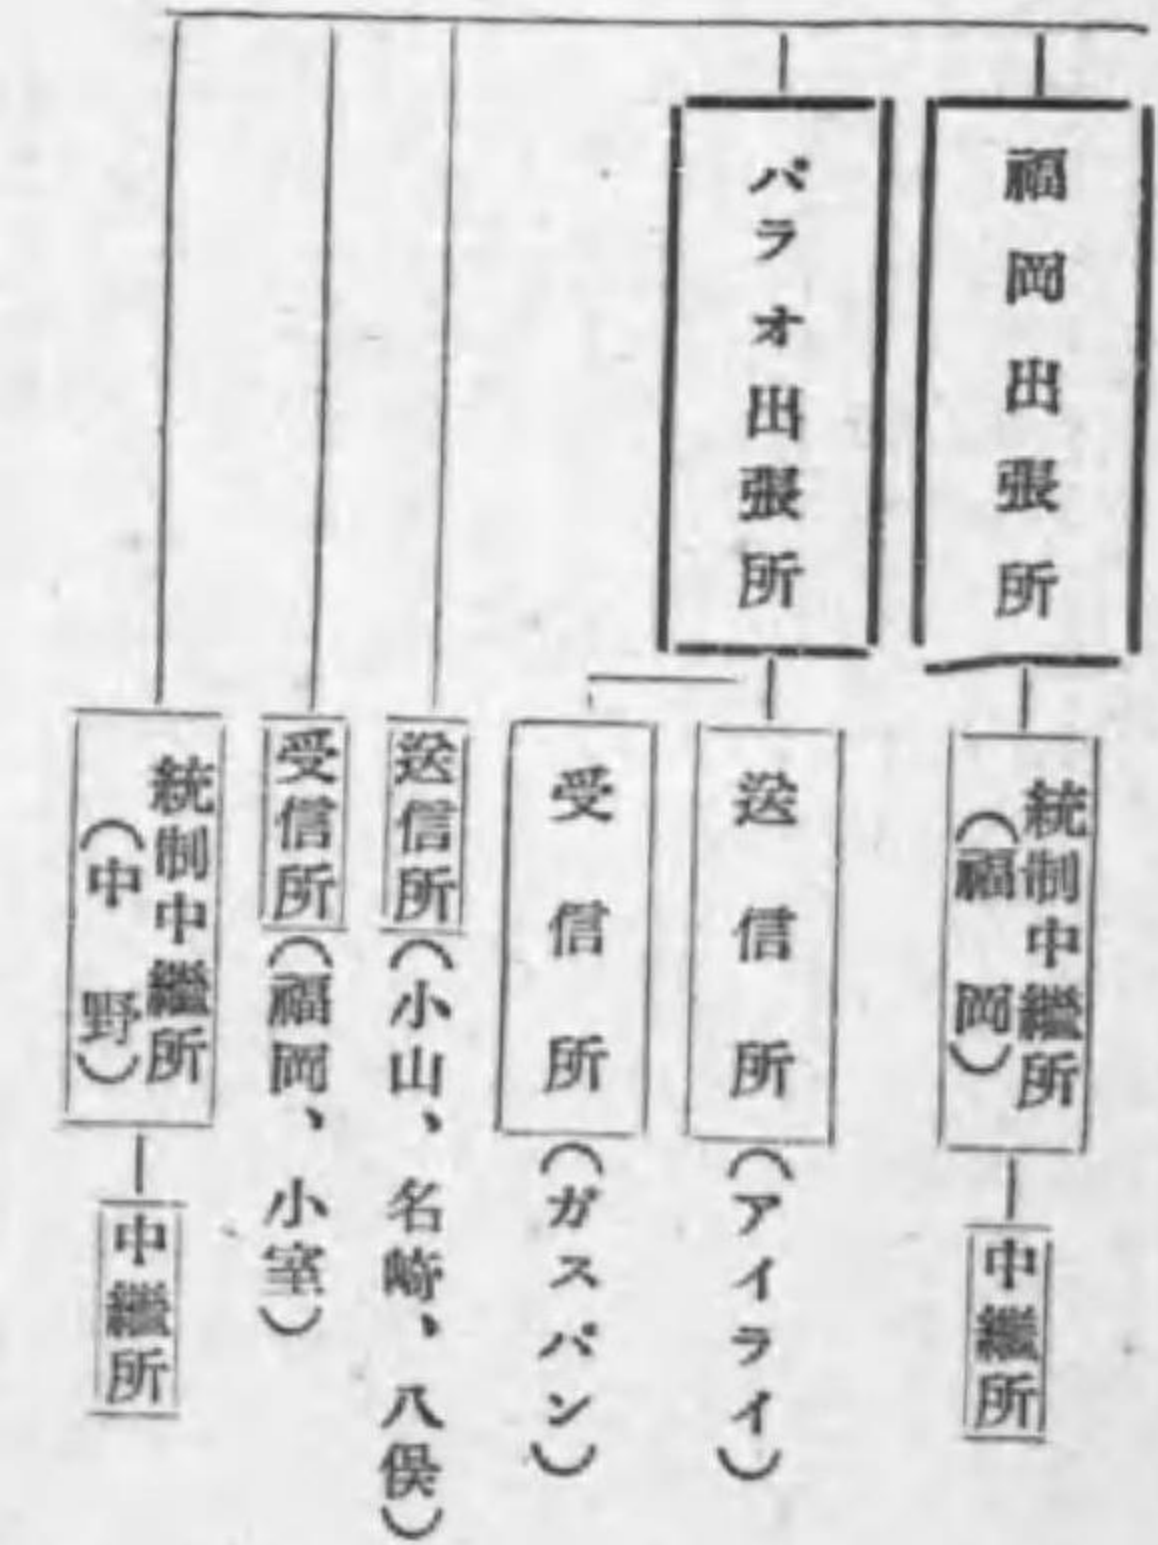 福岡出張所
統制中繼所
(福岡)
中繼所
パラオ出張所
送信所
(アイライ)
受信所
(ガスパン)
送信所
(小山、名崎、八俣)
受信所
(福岡、小室)
統制中繼所
(中野)
中繼所